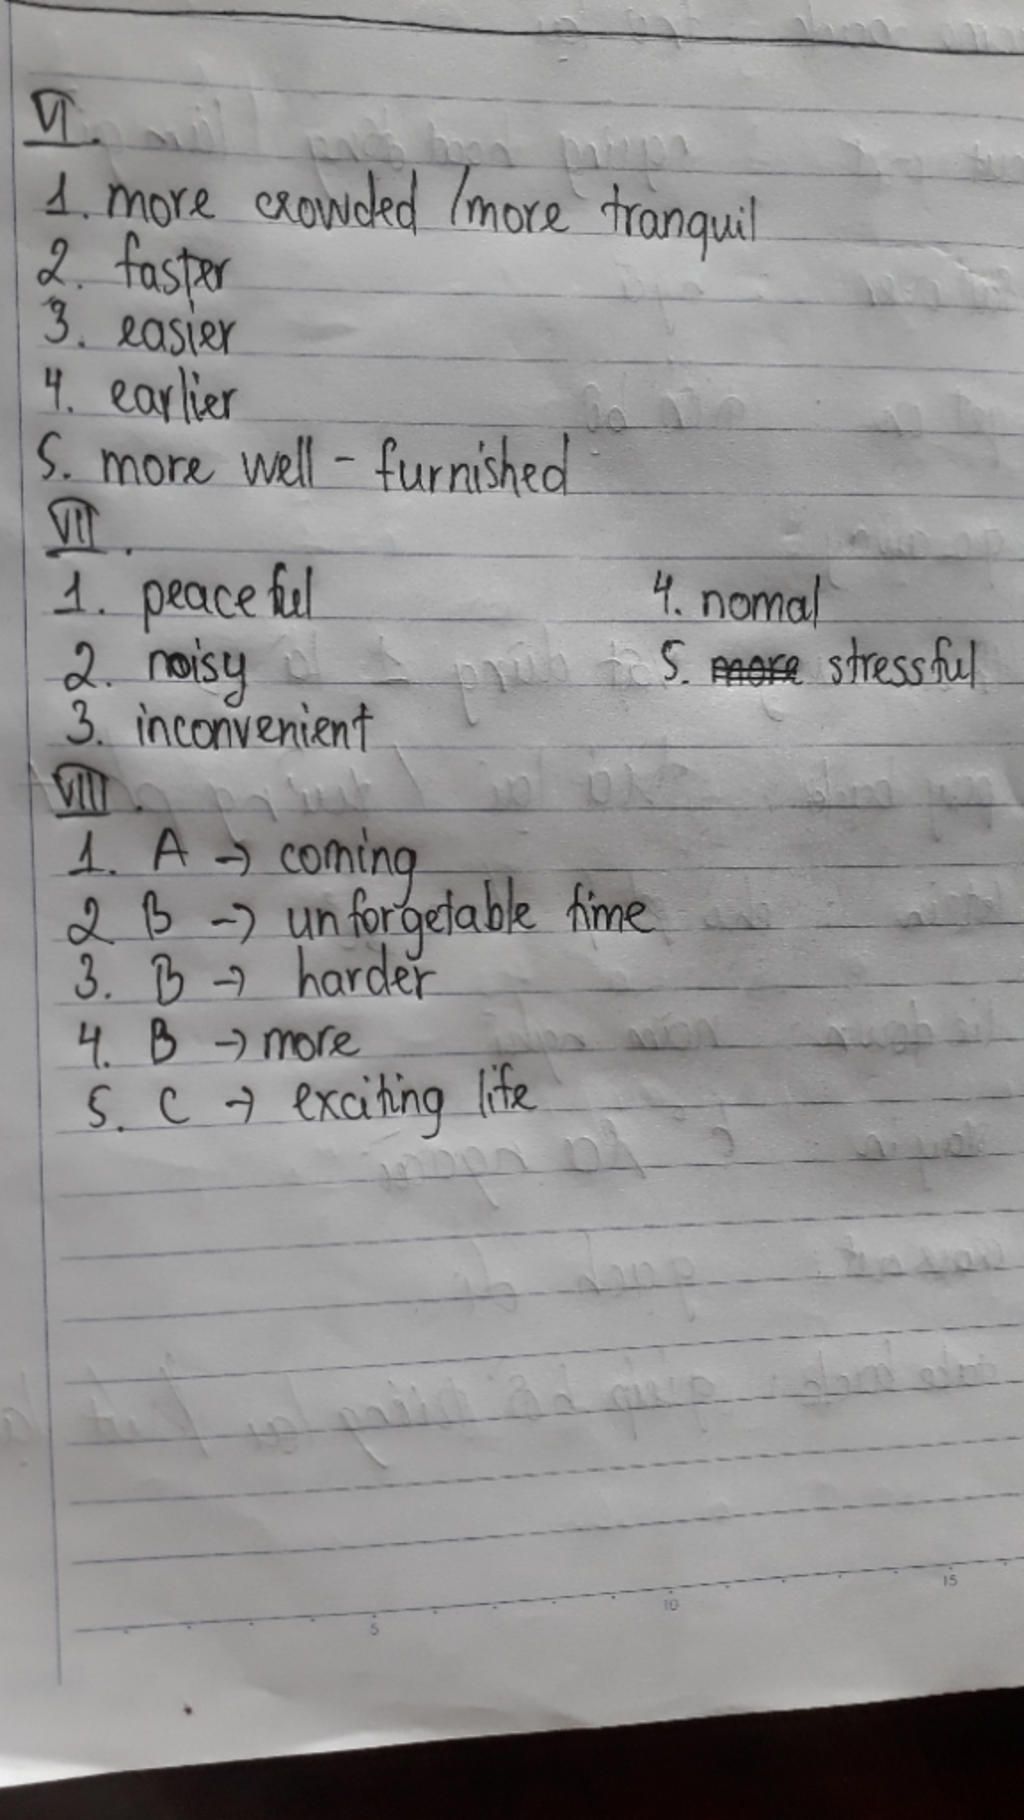 VI.
1. more crowded / more tranquil
2. faster
3. easier
4. earlier
5. more well - furnished
VII.
1. peaceful
2. noisy
3. inconvenient
4. nomal
5. more stressful
VIII.
1. A → coming
2 B → unforgetable time
3. B → harder
4. B → more
5. C → exciting life
5 10 15